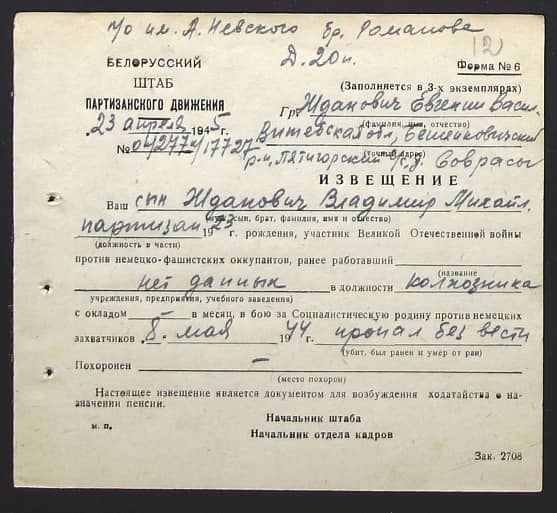 п/о им. А. Невского бр. Романова
Д. 20п.
(2)
БЕЛОРУССКИЙ
ШТАБ
ПАРТИЗАНСКОГО ДВИЖЕНИЯ
Форма № 6
(Заполняется в 3-х экземплярах)
23 апреля 1945г.
№ 04/277ч/17727
Гр. Жданович Евгении Васил.
(фамилия, имя, отчество)
Витебская обл, Бешенковичский
(точный адрес)
р-н, Пятигорский с/с, д. Соврасы
ИЗВЕЩЕНИЕ
Ваш сын Жданович Владимир Михайл.
(муж, сын, брат, фамилия, имя и отчество)
партизан 1923 г. рождения, участник Великой Отечественной войны
(должность в части)
против немецко-фашистских оккупантов, ранее работавший
(название
нет данных в должности колхозника
учреждения, предприятия, учебного заведения)
с окладом – в месяц, в бою за Социалистическую родину против немецких
захватчиков 8. мая 1944 г. пропал без вести
(убит, был ранен и умер от ран)
Похоронен –
(место похорон)
Настоящее извещение является документом для возбуждения ходатайства о на-
значении пенсии.
м. п.
Начальник штаба
Начальник отдела кадров
Зак. 2708